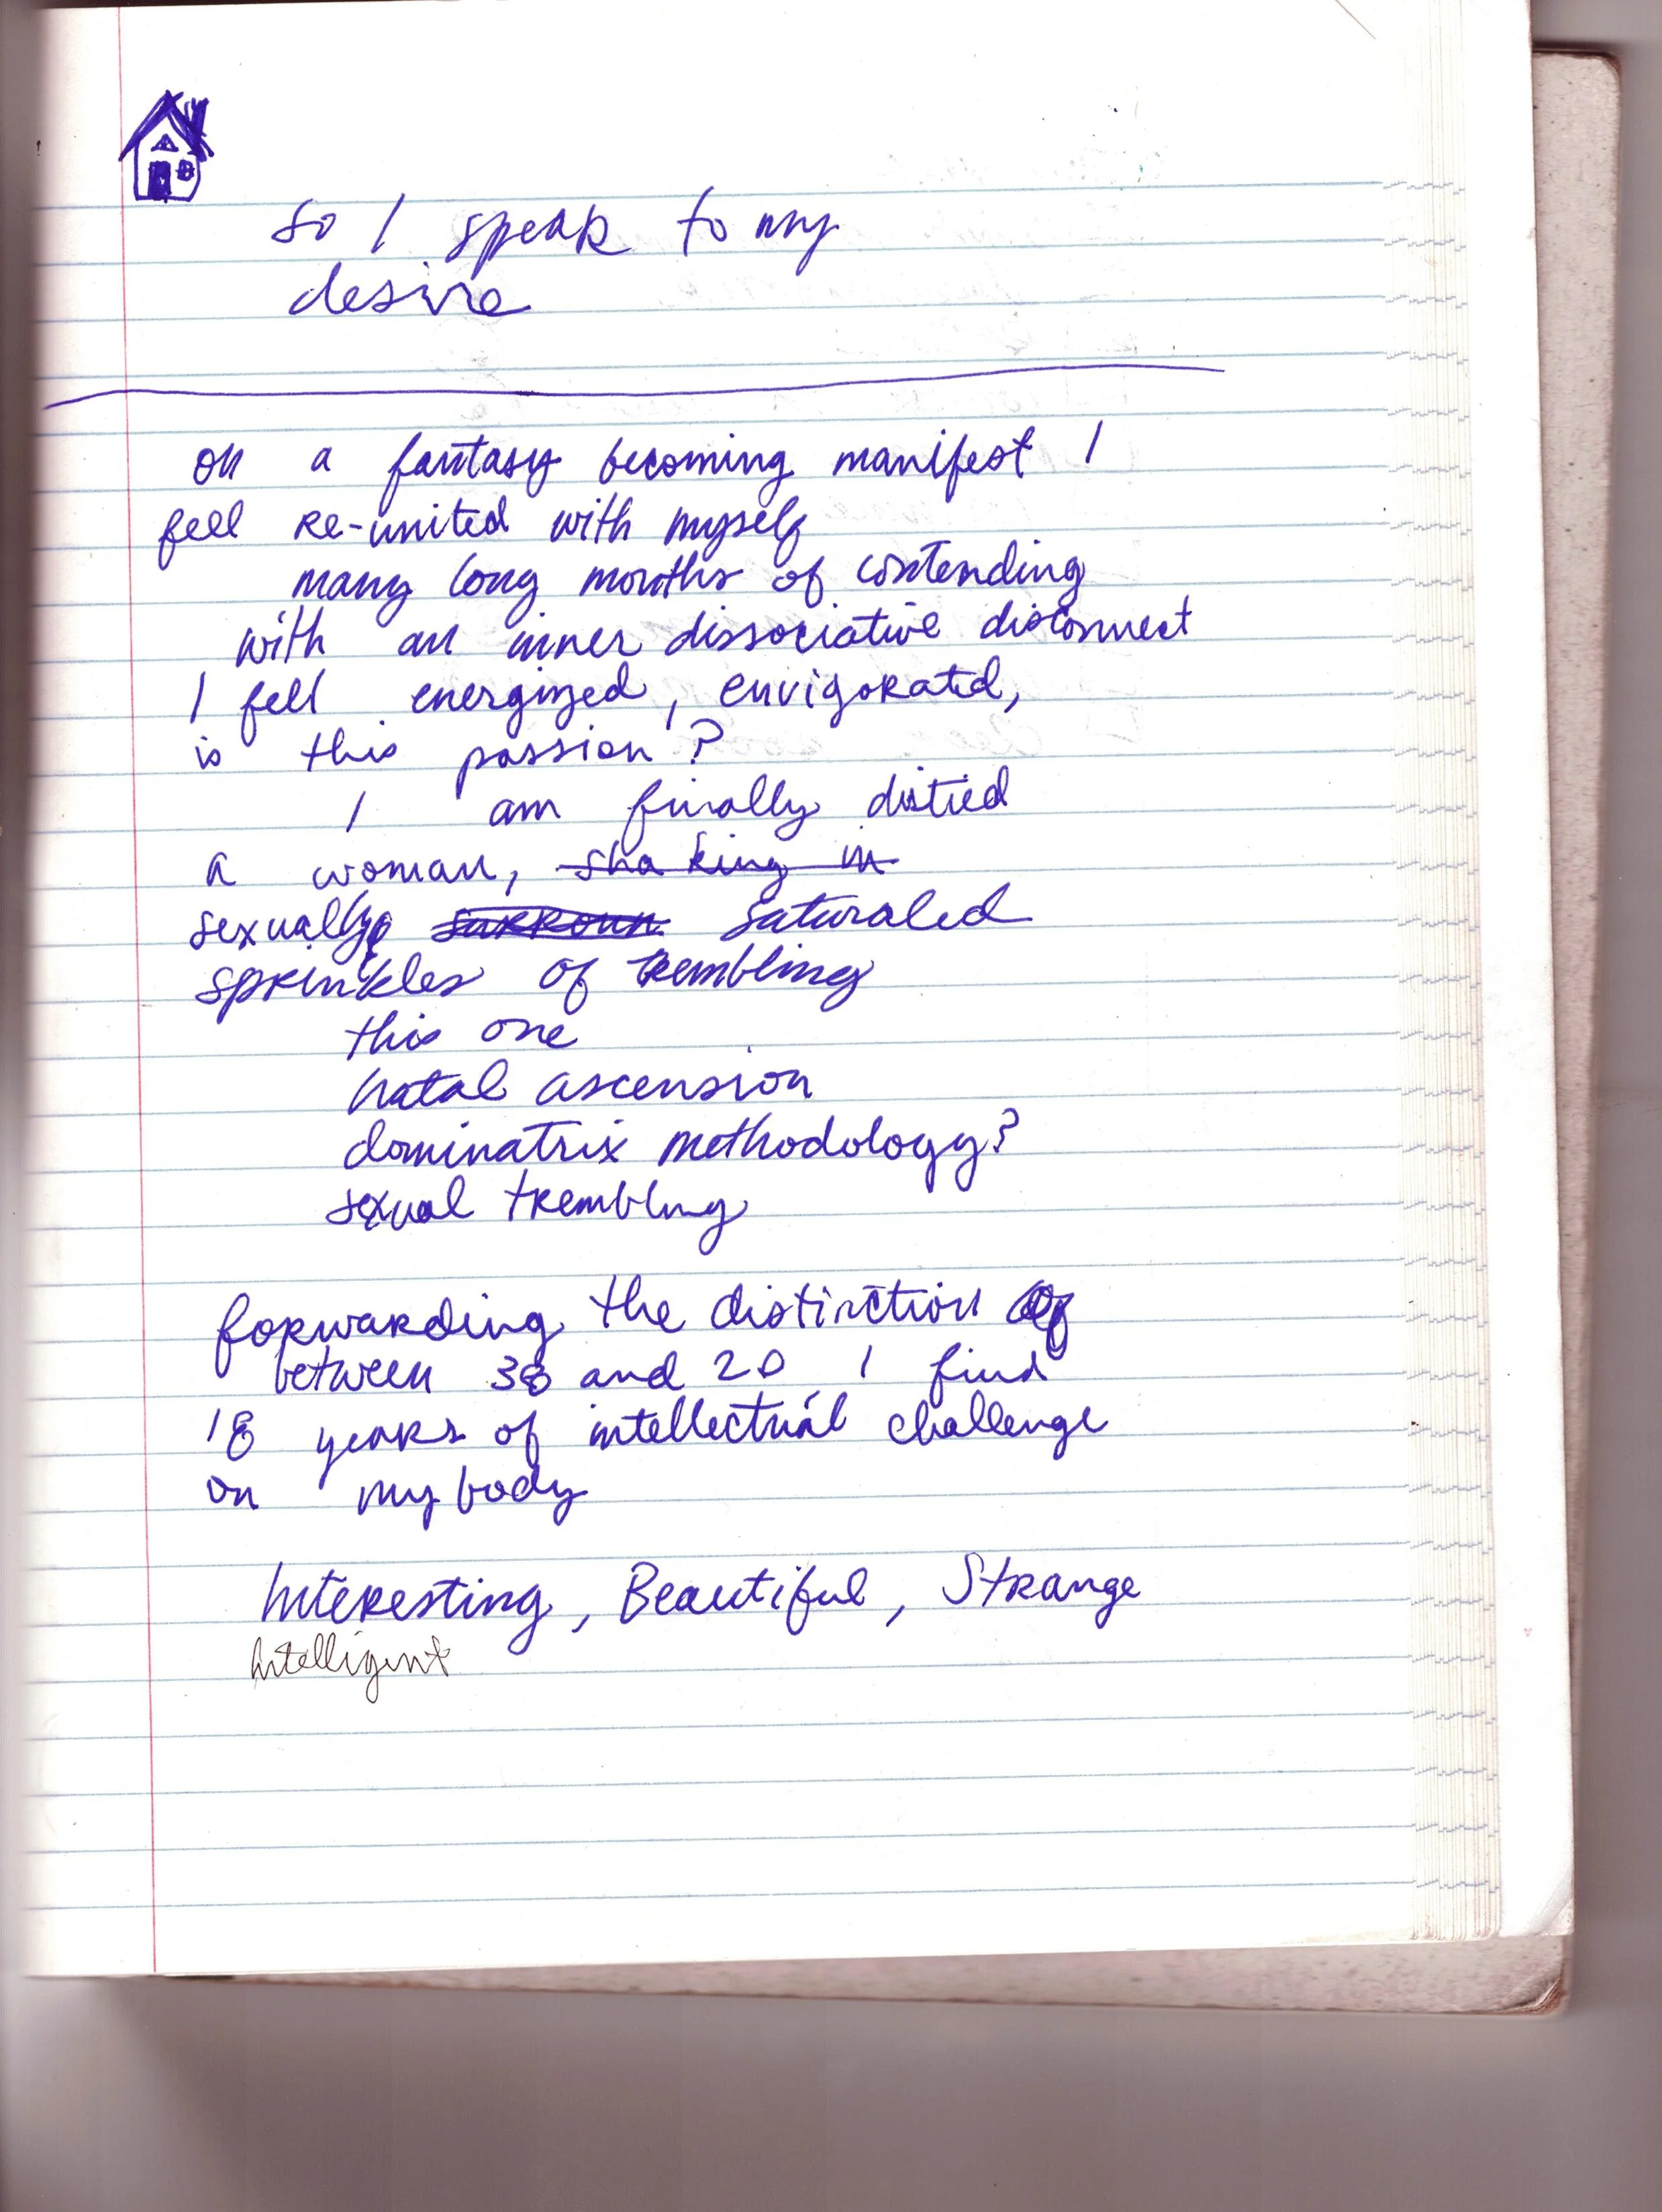 So I speak to my
desire
on a fantasy becoming manifest I
feel re-united with myself
many long months of contending
with an inner dissociative disconnect
I feel energized, envigorated,
is this passion?
I am finally
a woman, shaking in
sexually surroun saturated
sprinkles of trembling
this one
natal ascension
dominatrix methodology?
sexual trembling
forwarding the distinction of
between 38 and 20 I find
18 years of intellectual challenge
on my body
Interesting, Beautiful, Strange
Intelligent